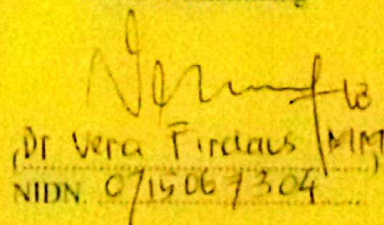 (Dr Vera Firdaus, MM)
NIDN. 0715067304